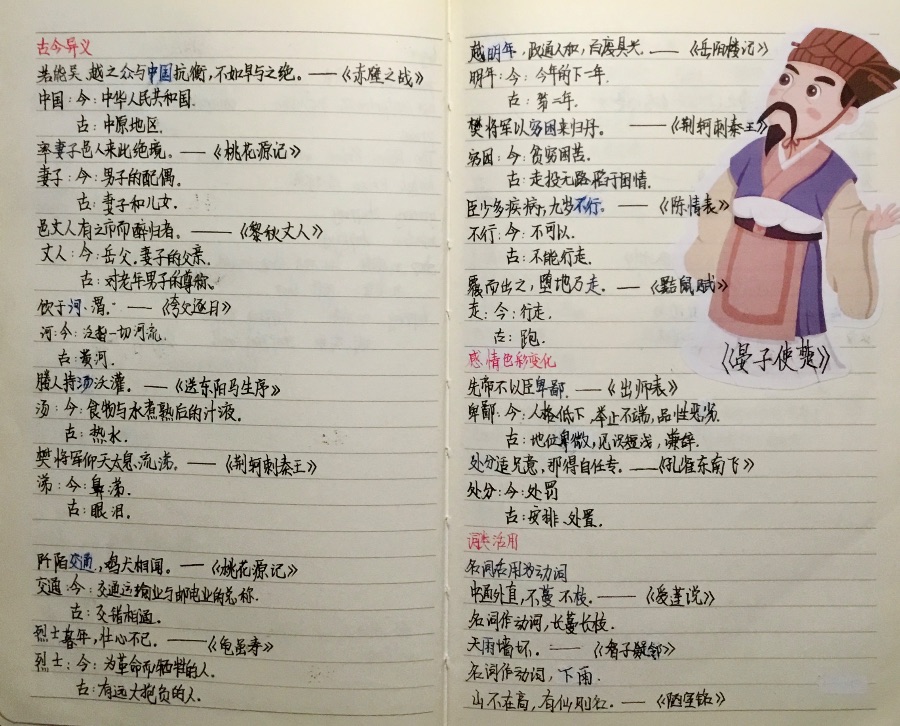 古今异义
若能吴、越之众与中国抗衡,不如早与之绝。——《赤壁之战》
中国:今:中华人民共和国.
古:中原地区.
率妻子邑人来此绝境。——《桃花源记》
妻子:今:男子的配偶。
古:妻子和儿女.
邑丈人有之市而醉归者。——《黎秋丈人》
丈人:今:岳父.妻子的父亲.
古:对老年男子的尊称、
饮于河、渭.——《夸父逐日》
河:今:泛指一切河流
古:黄河.
媵人持汤沃灌。——《送东阳马生序》
汤:今:食物与水煮熟后的汁液。
古:热水.
樊将军仰天太息流涕。——《荆轲刺秦王》
涕:今:鼻涕.
古:眼泪.
阡陌交通,鸡犬相闻。——《桃花源记》
交通:今:交通运输业与邮电业的总称.
古:交错相通。
烈士暮年,壮心不已。——《龟虽寿》
烈士:今:为革命而牺牲的人.
古:有远大抱负的人.
越明年,政通人和,百废具兴.——《岳阳楼记》
明年:今:今年的下一年.
古:第二年.
樊将军以穷困来归丹。——《荆轲刺秦王》
穷困:今:贫穷困苦.
古:走投无路陷于困情.
臣少多疾病,九岁不行。——《陈情表》
不行:今:不可以.
古:不能行走.
覆而出之,堕地乃走。——《黠鼠赋》
走:今:行走.
古:跑.
《晏子使楚》
感情色彩变化
先帝不以臣卑鄙.——《出师表》
卑鄙:今:人格低下,举止不端,品性恶劣.
古:地位卑微,见识短浅,
处分适兄意,那得自任专。——《孔雀东南飞》
处分:今:处罚
古:安排、处置.
词类活用
名词活用为动词
中通外直,不蔓不枝.——《爱莲说》
名词作动词,长蔓长枝.
天雨墙坏.——《智子疑邻》
名词作动词,下雨.
山不在高,有仙则名.——《陋室铭》